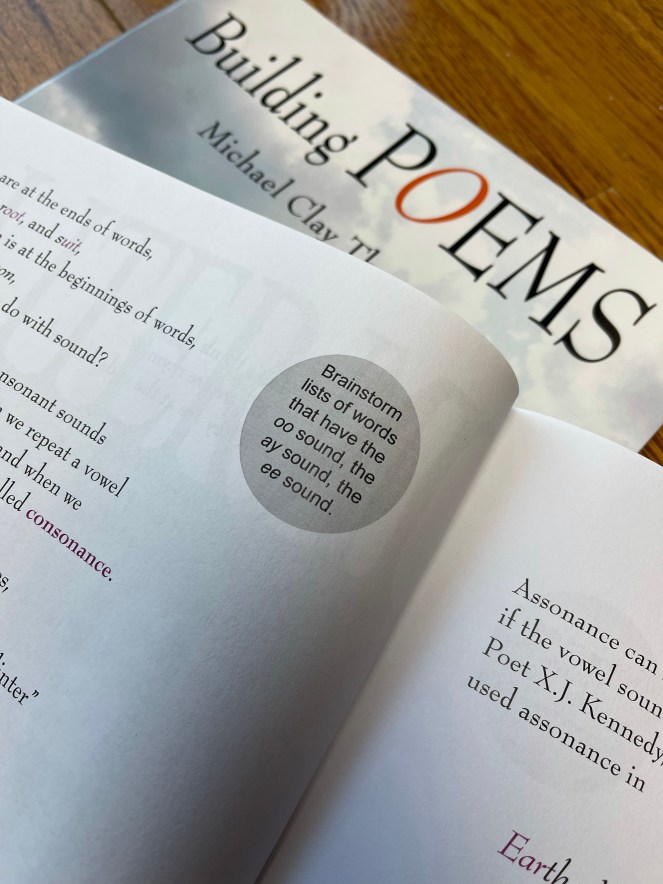 Building POEMS
Michael Clay
are at the ends of words,
root, and suit,
is at the beginnings of words,
on,
do with sound?
nsonant sounds
we repeat a vowel
nd when we
lled consonance.
Brainstorm
lists of words
that have the
oo sound, the
ay sound, the
ee sound.
inter”
Assonance can
if the vowel soun
Poet X.J. Kennedy,
used assonance in
Earth